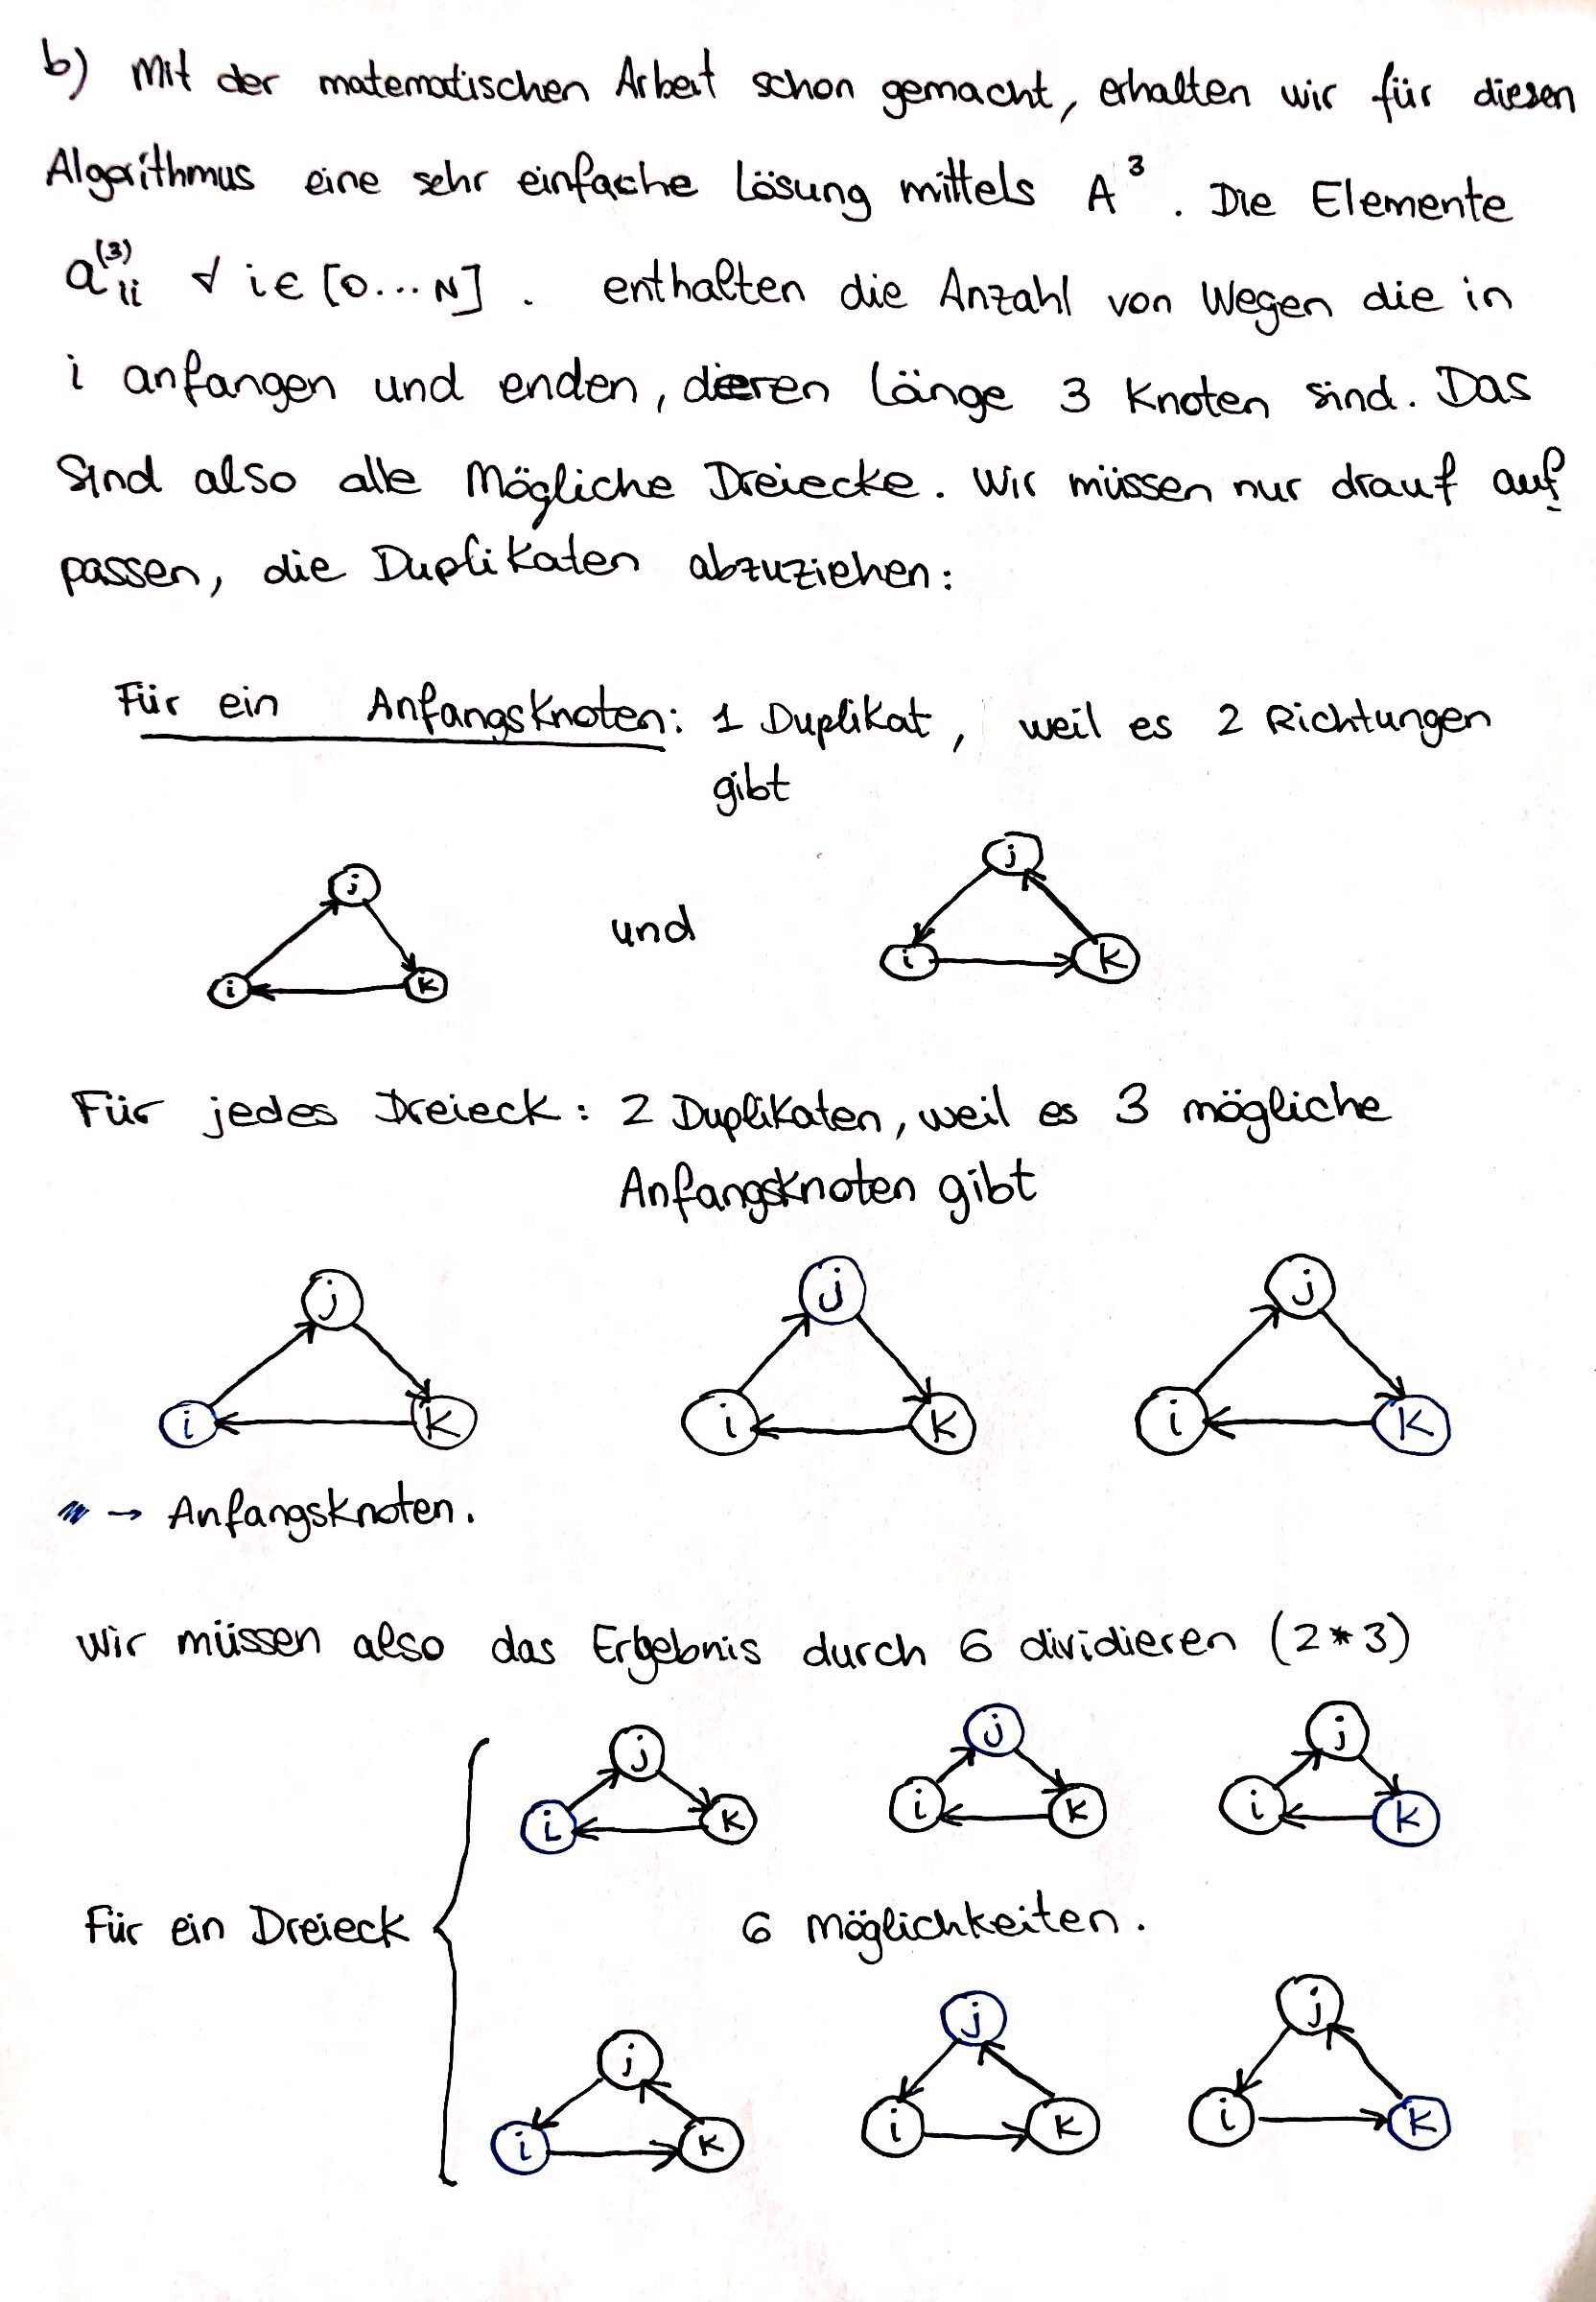 b) Mit der matematischen Arbeit schon gemacht, erhalten wir für diesen
Algorithmus eine sehr einfache Lösung mittels A³. Die Elemente
a⁽³⁾ᵢᵢ ∀ i ∈ [0...N]. enthalten die Anzahl von Wegen die in
i anfangen und enden, deren Länge 3 Knoten sind. Das
sind also alle Mögliche Dreiecke. Wir müssen nur drauf auf
passen, die Duplikaten abzuziehen:
Für ein Anfangsknoten: 1 Duplikat, weil es 2 Richtungen
gibt
j
i
k
und
j
i
k
Für jedes Dreieck: 2 Duplikaten, weil es 3 mögliche
Anfangsknoten gibt
j
i
k
j
i
k
j
i
k
→ Anfangsknoten.
Wir müssen also das Ergebnis durch 6 dividieren (2*3)
j
i
k
j
i
k
j
i
k
Für ein Dreieck
6 Möglichkeiten.
j
i
k
j
i
k
j
i
k